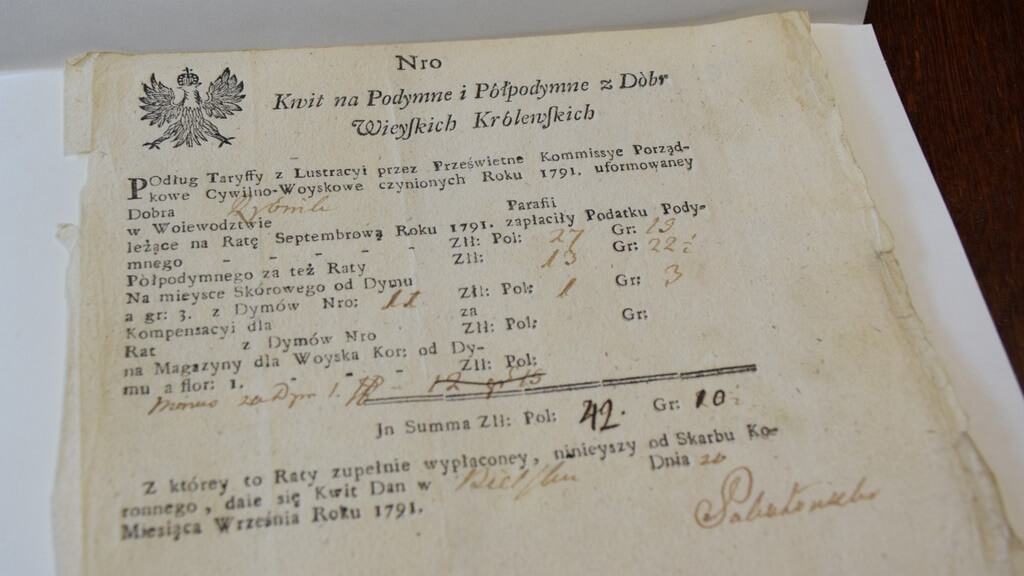 Nro
Kwit na Podymne i Półpodymne z Dòbr
Wieyſkich Królewſkich
POdług Taryffy z Lustracyi przez Prześwietne Kommissye Porząd-
kowe Cywilno-Woyskowe czynionych Roku 1791. uformowaney
Dobra
w Woiewodztwie Parafii
leżące na Ratę Septembrową Roku 1791. zapłaciły Podatku Pody-
mnego - - - - - Złł: Pol: 27 Gr: 15
Pòłpodymnego za też Raty Złł: 13 Gr: 22½
Na mieysce Skórowego od Dymu
a gr: 3. z Dymów Nro: 11 Złł: Pol: 1 Gr: 3
Kompensacyi dla za
Rat z Dymów Nro Złł: Pol: Gr:
na Magazyny dla Woyska Kor: od Dy-
mu a flor: 1. - - - Złł: Pol:
12 gr 15
Jn Summa Złł: Pol: 42. Gr: 10
Z którey to Raty zupełnie wypłaconey, ninieyszy od Skarbu Ko-
ronnego, daie się Kwit Dan w Dnia 20
Miesiąca Września Roku 1791.